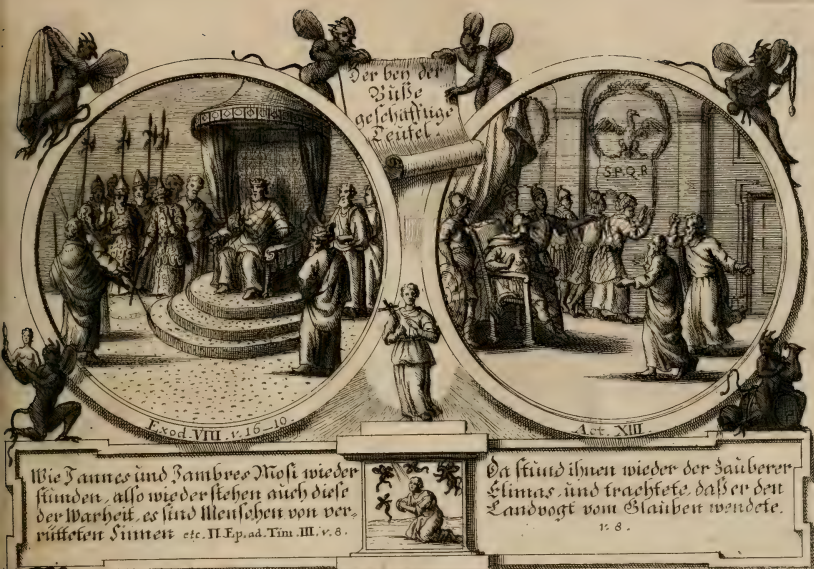 Der beÿ der
Buße
geschäfftige
Teufel.
S.P.Q.R
Exod. VIII. v. 16–19.
Act. XIII.
Wie Jannes und Jambres Mosi wieder
stunden, also wieder stehen auch diese
der Warheit, es sind Menschen von ver-
rütteten Sinnen etc. II. Ep. ad. Tim. III. v. 8.
Da stund ihnen wieder der Zauberer
Elimas, und trachtete, daß er den
Landvogt vom Glauben wendete.
v. 8.